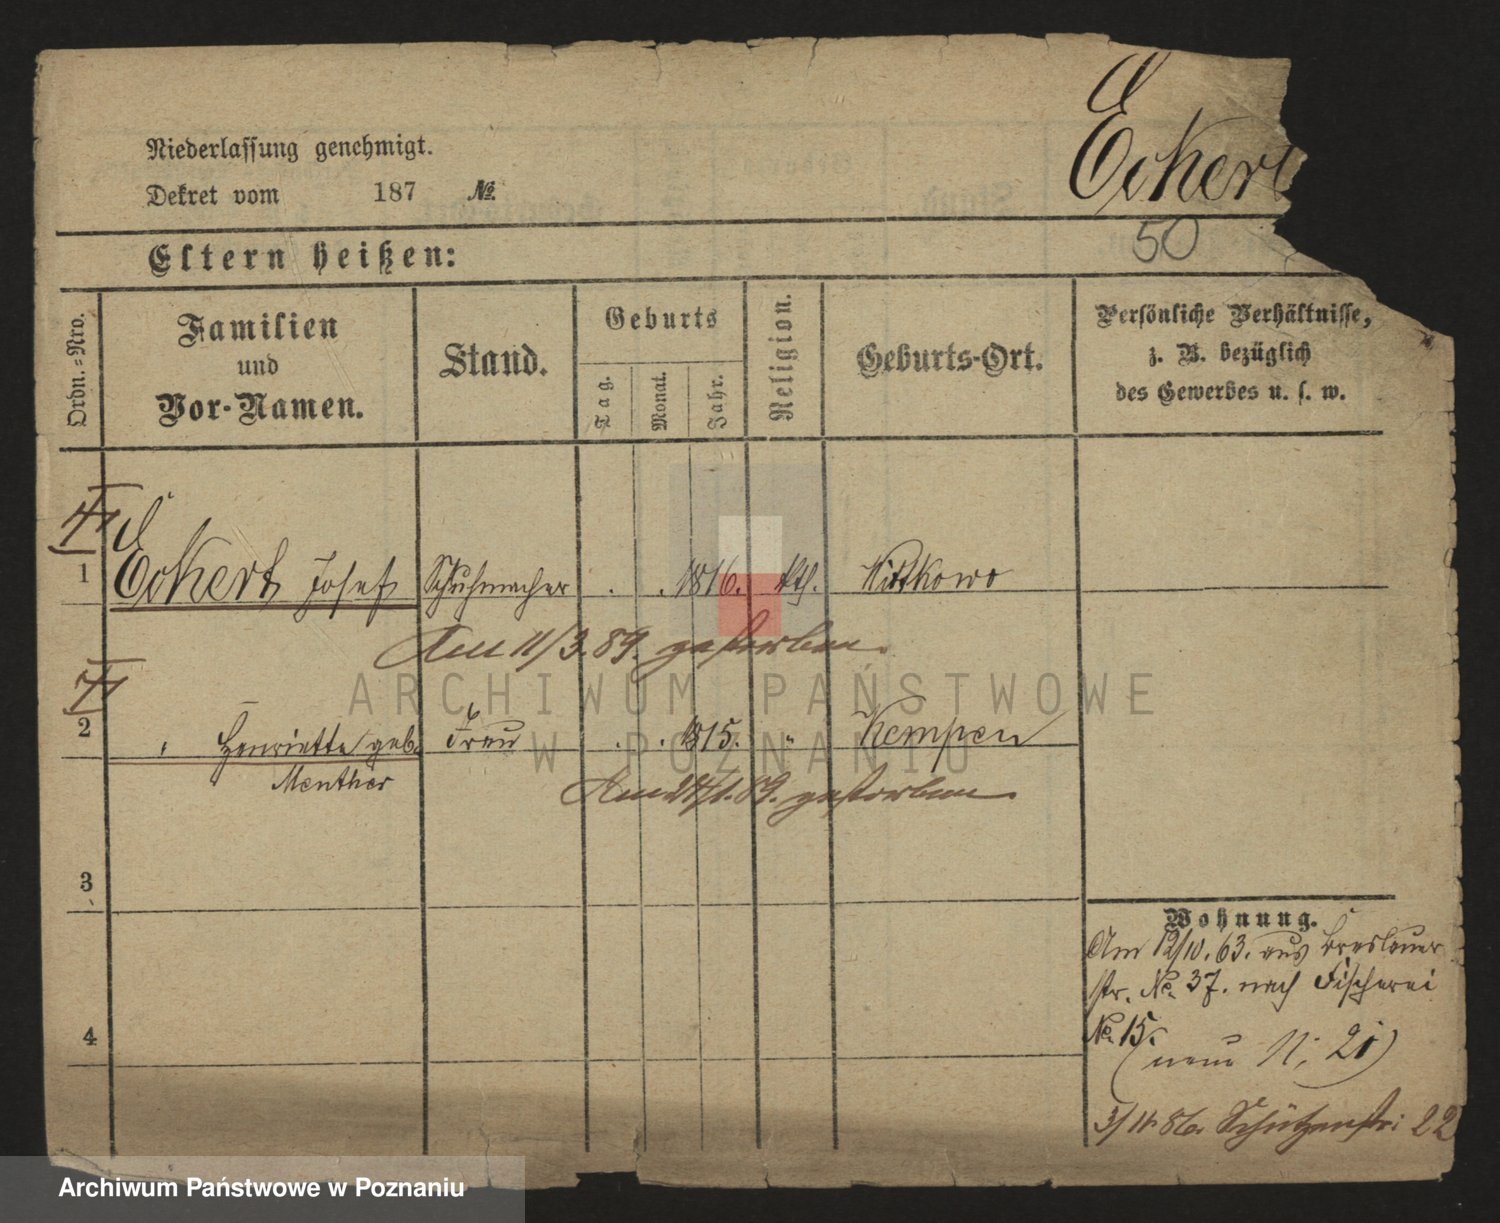 Eckert
Niederlassung genehmigt.
Dekret vom 187 №
50
Eltern heißen:
Ordn.=Nro.
Familien
und
Vor-Namen.
Stand.
Geburts
Tag.
Monat.
Jahr.
Religion.
Geburts-Ort.
Persönliche Verhältnisse,
z. B. bezüglich
des Gewerbes u. s. w.
1 Eckert Josef Schuhmacher . . 1816. kth. Witkowo
Am 11/3.89. gestorben.
2 " Henriette geb. Frau . . 1815. " Kempen
Menther
Am 24/1.89. gestorben
3
4
Wohnung.
Am 12/10.63. aus Breslauer
str. No. 37. nach Fischerei
No. 15.
(neue N: 21)
3/11.86. Schützenstr: 22
ARCHIWUM PAŃSTWOWE
W POZNANIU
Archiwum Państwowe w Poznaniu